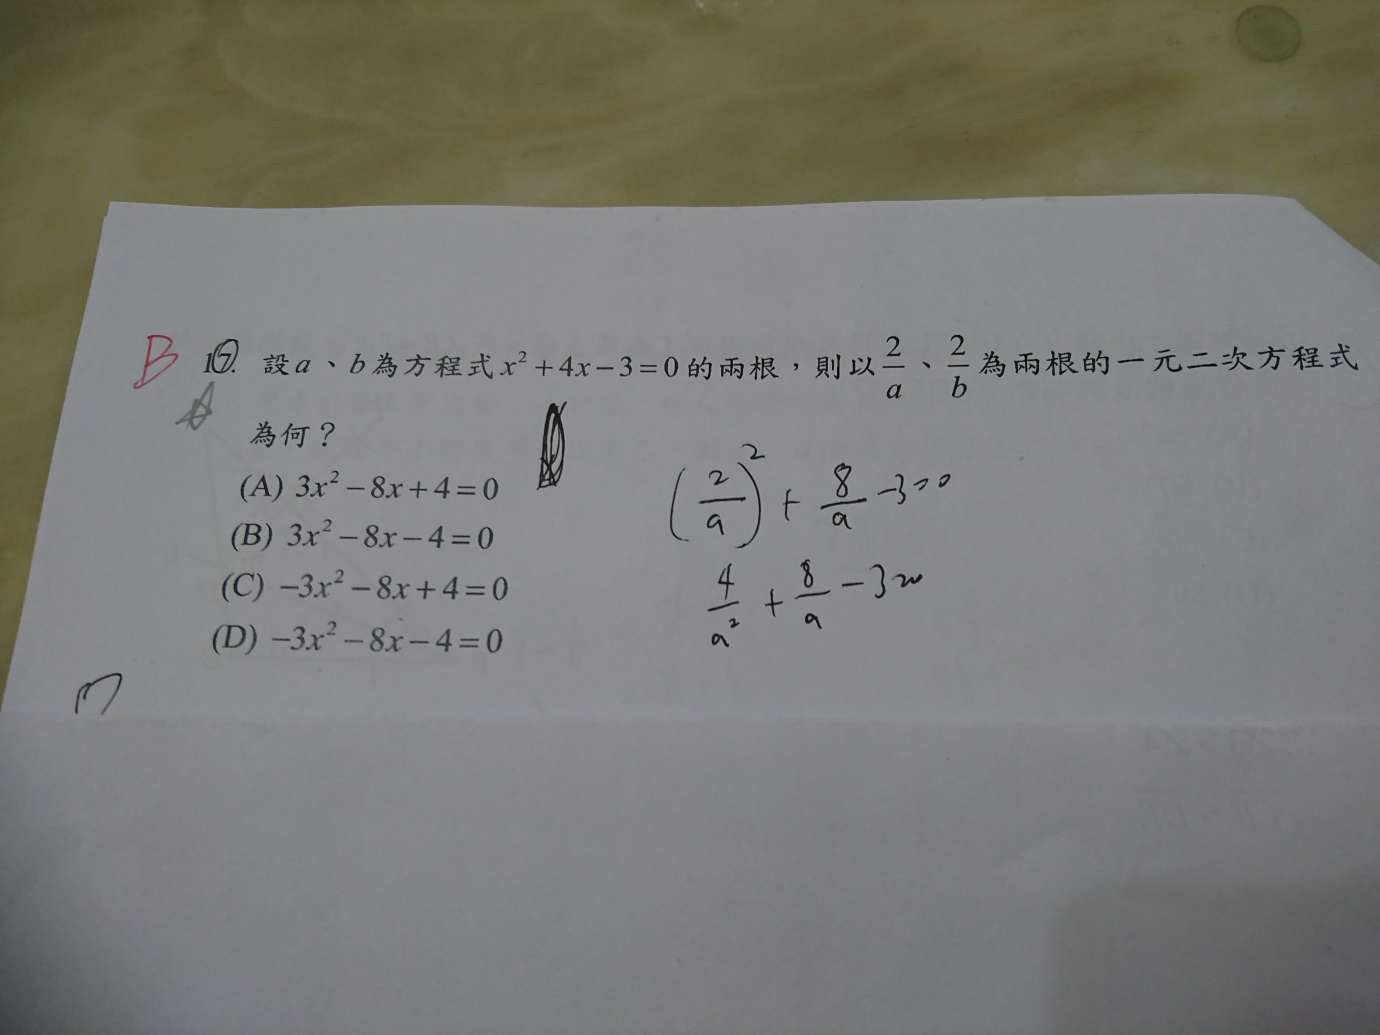 B 17. 設a、b為方程式x²+4x−3=0的兩根，則以2/a、2/b為兩根的一元二次方程式
為何？
(A) 3x²−8x+4=0
(B) 3x²−8x−4=0
(C) −3x²−8x+4=0
(D) −3x²−8x−4=0
(2/a)² + 8/a −3=0
4/a² + 8/a −3=0